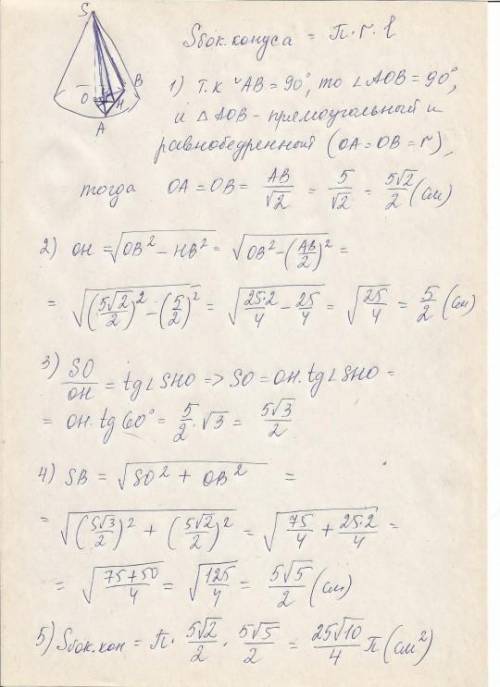 S
O
H
B
A
Sбок.конуса = π·r·l
1) т.к ◡AB=90°, то ∠AOB=90°,
и △AOB-прямоугольный и
равнобедренный (OA=OB=r),
тогда OA=OB= AB/√2 = 5/√2 = 5√2/2 (см)
2) OH=√(OB²-HB²)= √(OB²-(AB/2)²) =
= √((5√2/2)²-(5/2)²) = √(25·2/4 - 25/4) = √(25/4) = 5/2 (см)
3) SO/OH = tg∠SHO => SO=OH·tg∠SHO =
= OH·tg60° = 5/2·√3 = 5√3/2
4) SB = √(SO² + OB²) =
= √((5√3/2)² + (5√2/2)²) = √(75/4 + 25·2/4) =
= √((75+50)/4) = √(125/4) = 5√5/2 (см)
5) Sбок.кон = π· 5√2/2 · 5√5/2 = 25√10/4 π (см²)